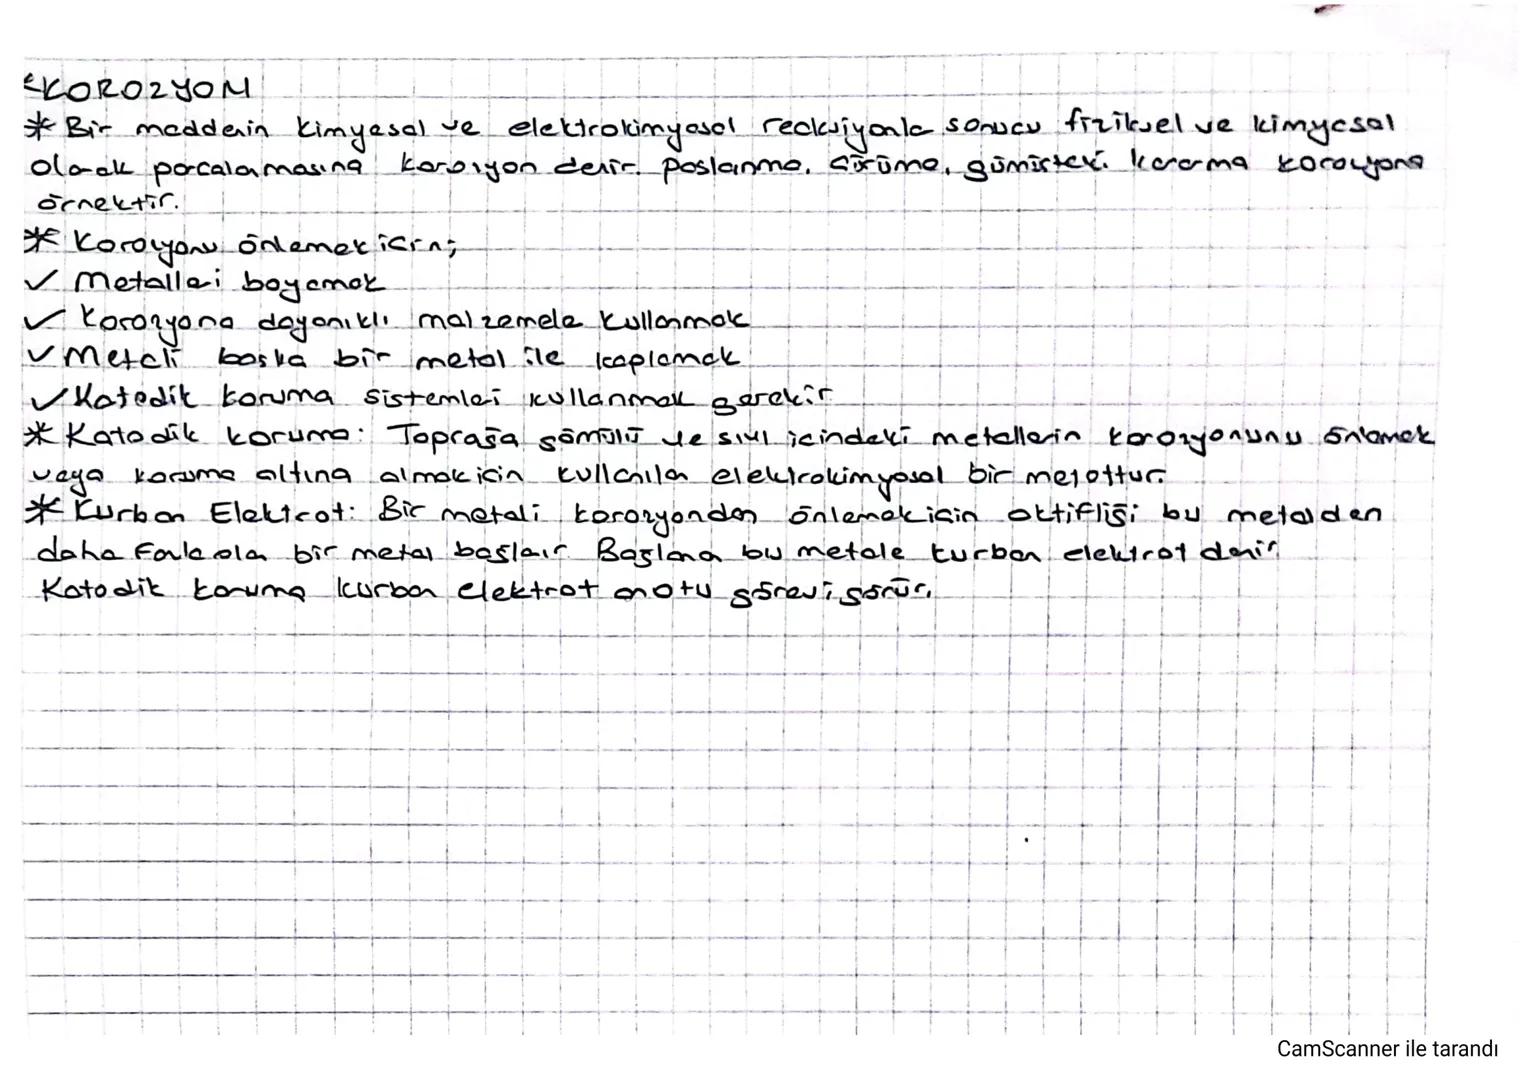 KOROZYON
* Bir maddenin kimyasal ve elektrokimyasal reaksiyonla sonucu fiziksel ve kimyasal
olarak parçalamasına korozyon denir. Paslanma, çürüme, gümüşteki kararma korozyona
örnektir.
* Korozyonu önlemek için;
✓ Metalleri boyamak
✓ Korozyona dayanıklı malzemele kullanmak
✓ Metali başka bir metal ile kaplamak
✓ Katodik koruma sistemleri kullanmak gerekir
* Katodik koruma: Toprağa gömülü ve sıvı içindeki metallerin korozyonunu önlemek
veya koruma altına almak için kullanılan elektrokimyasal bir metottur.
* Kurban Elektrot: Bir metali korozyondan önlemek için aktifliği bu metalden
daha fazla ola bir metal bağlanır Bağlana bu metale kurban elektrot denir
Katodik koruma kurban elektrot anotu görevi görür.
CamScanner ile tarandı